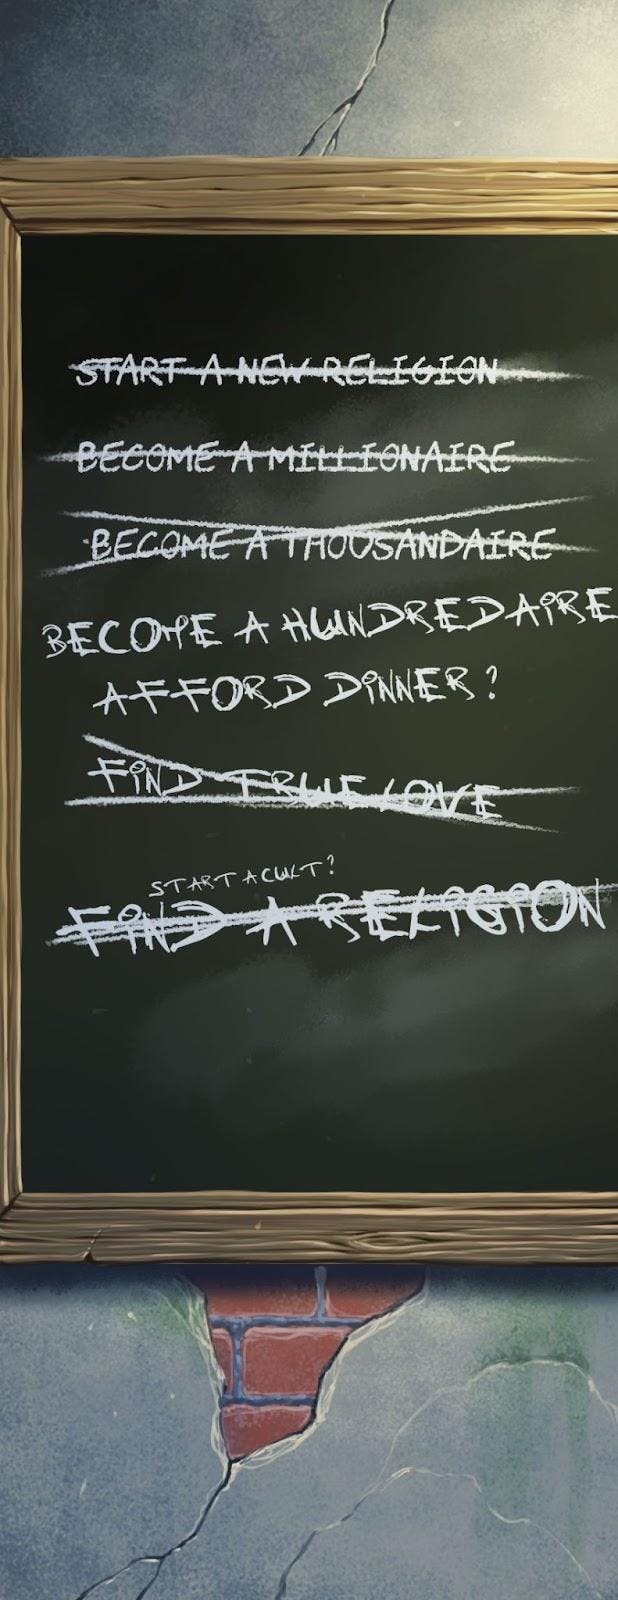 START A NEW RELIGION
BECOME A MILLIONAIRE
BECOME A THOUSANDAIRE
BECOME A HUNDREDAIRE
AFFORD DINNER?
FIND TRUE LOVE
START A CULT?
FIND A RELIGION